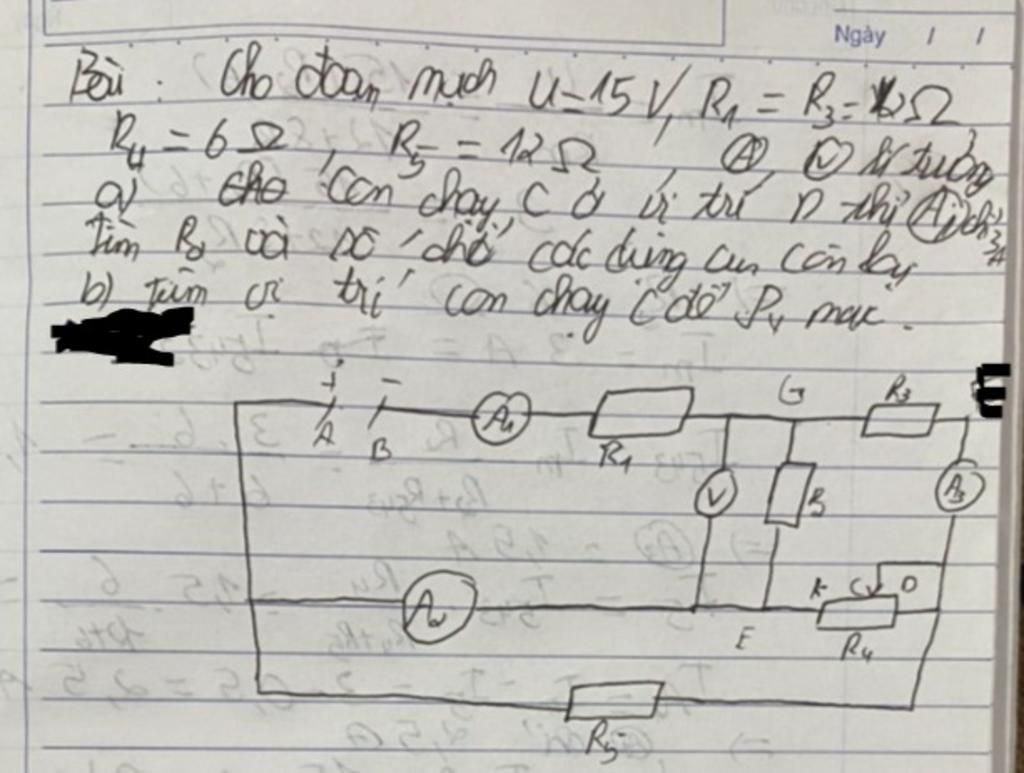 Ngày / /
Bài: Cho đoạn mạch U=15 V, R1 = R3 = 2Ω
R4 = 6 Ω, R5 = 12 Ω, (A), (V) lí tưởng
a) cho con chạy C ở vị trí D thì (A1) chỉ 3A
Tìm và số chỉ các dụng cụ còn lại
b) Tìm vị trí con chạy C để P4 max.
+ -
A B A1 R1 G R3 E
V A3
A2 E K C D
R4
R5